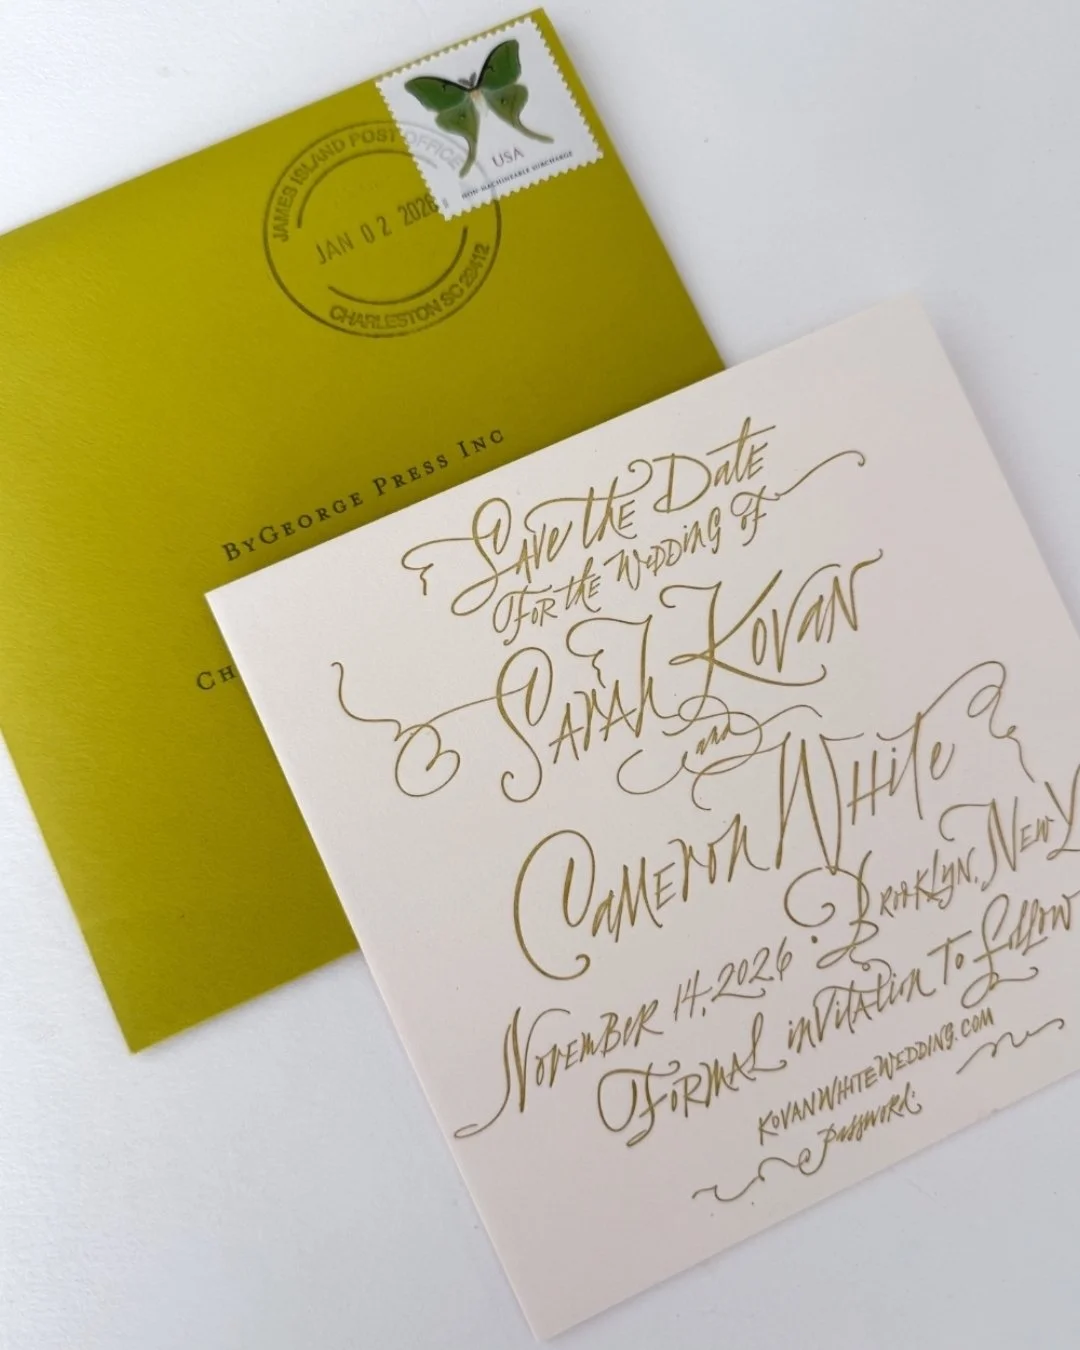 JAMES ISLAND POST OFFICE
JAN 02 2026
CHARLESTON SC 29412
USA
NON-MACHINEABLE SURCHARGE
BYGEORGE PRESS INC
CH
Save the Date
For the Wedding of
Sarah Kovan
and
Cameron White
November 14, 2026 • Brooklyn, New Y
Formal invitation To Follow
KOVANWHITEWEDDING.COM
Password: